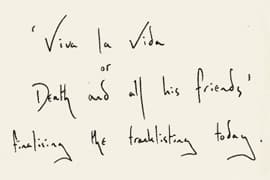 'Viva la Vida
or
Death and all his friends'
finalising the tracklisting today.